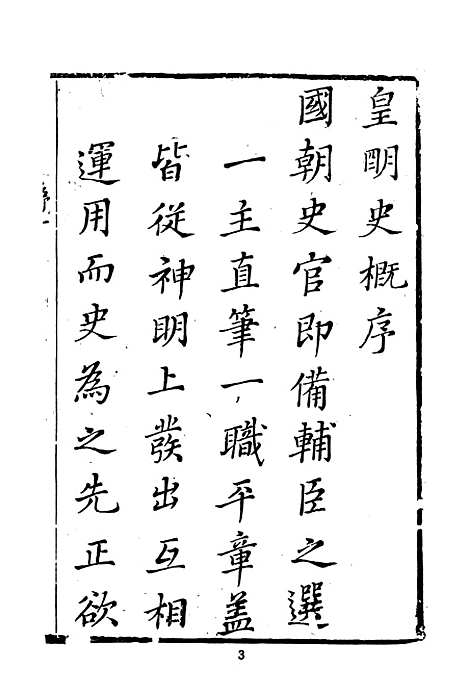 皇明史概序
國朝史官即備輔臣之選
一主直筆一職平章盖
皆從神明上發出互相
運用而史為之先正欲
序一
3